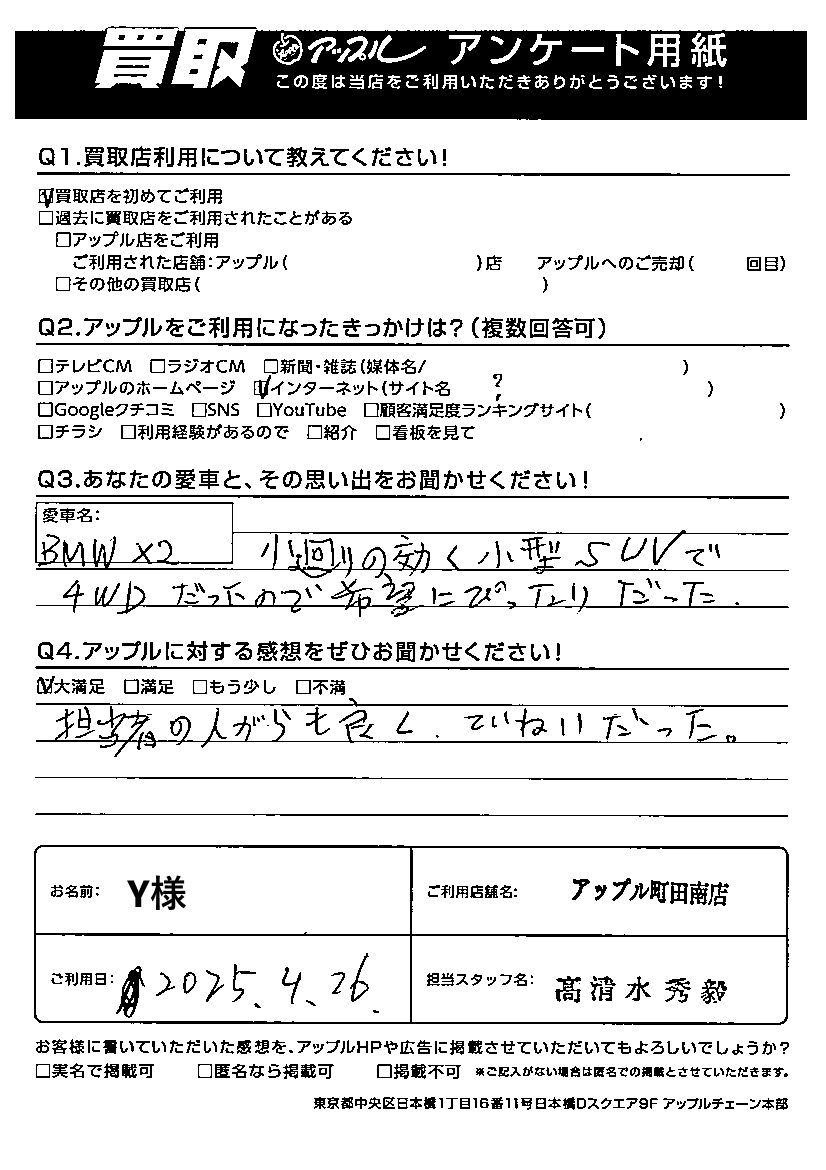 買取 アップル アンケート用紙
この度は当店をご利用いただきありがとうございます!
Q1.買取店利用について教えてください!
☑買取店を初めてご利用
□過去に買取店をご利用されたことがある
□アップル店をご利用
ご利用された店舗:アップル( )店 アップルへのご売却( 回目)
□その他の買取店( )
Q2.アップルをご利用になったきっかけは?(複数回答可)
□テレビCM □ラジオCM □新聞・雑誌(媒体名/ )
□アップルのホームページ ☑インターネット(サイト名 ? )
□Googleクチコミ □SNS □YouTube □顧客満足度ランキングサイト( )
□チラシ □利用経験があるので □紹介 □看板を見て
Q3.あなたの愛車と、その思い出をお聞かせください!
愛車名:
BMW X2 小回りの効く小型SUVで
4WDだったので希望にぴったりだった.
Q4.アップルに対する感想をぜひお聞かせください!
☑大満足 □満足 □もう少し □不満
担当者の人がらも良く、ていねいだった。
お名前: Y様 ご利用店舗名: アップル町田南店
ご利用日: 2025.4.26. 担当スタッフ名: 髙清水秀毅
お客様に書いていただいた感想を、アップルHPや広告に掲載させていただいてもよろしいでしょうか?
□実名で掲載可 □匿名なら掲載可 □掲載不可 ※ご記入がない場合は匿名での掲載とさせていただきます。
東京都中央区日本橋1丁目16番11号日本橋Dスクエア9F アップルチェーン本部